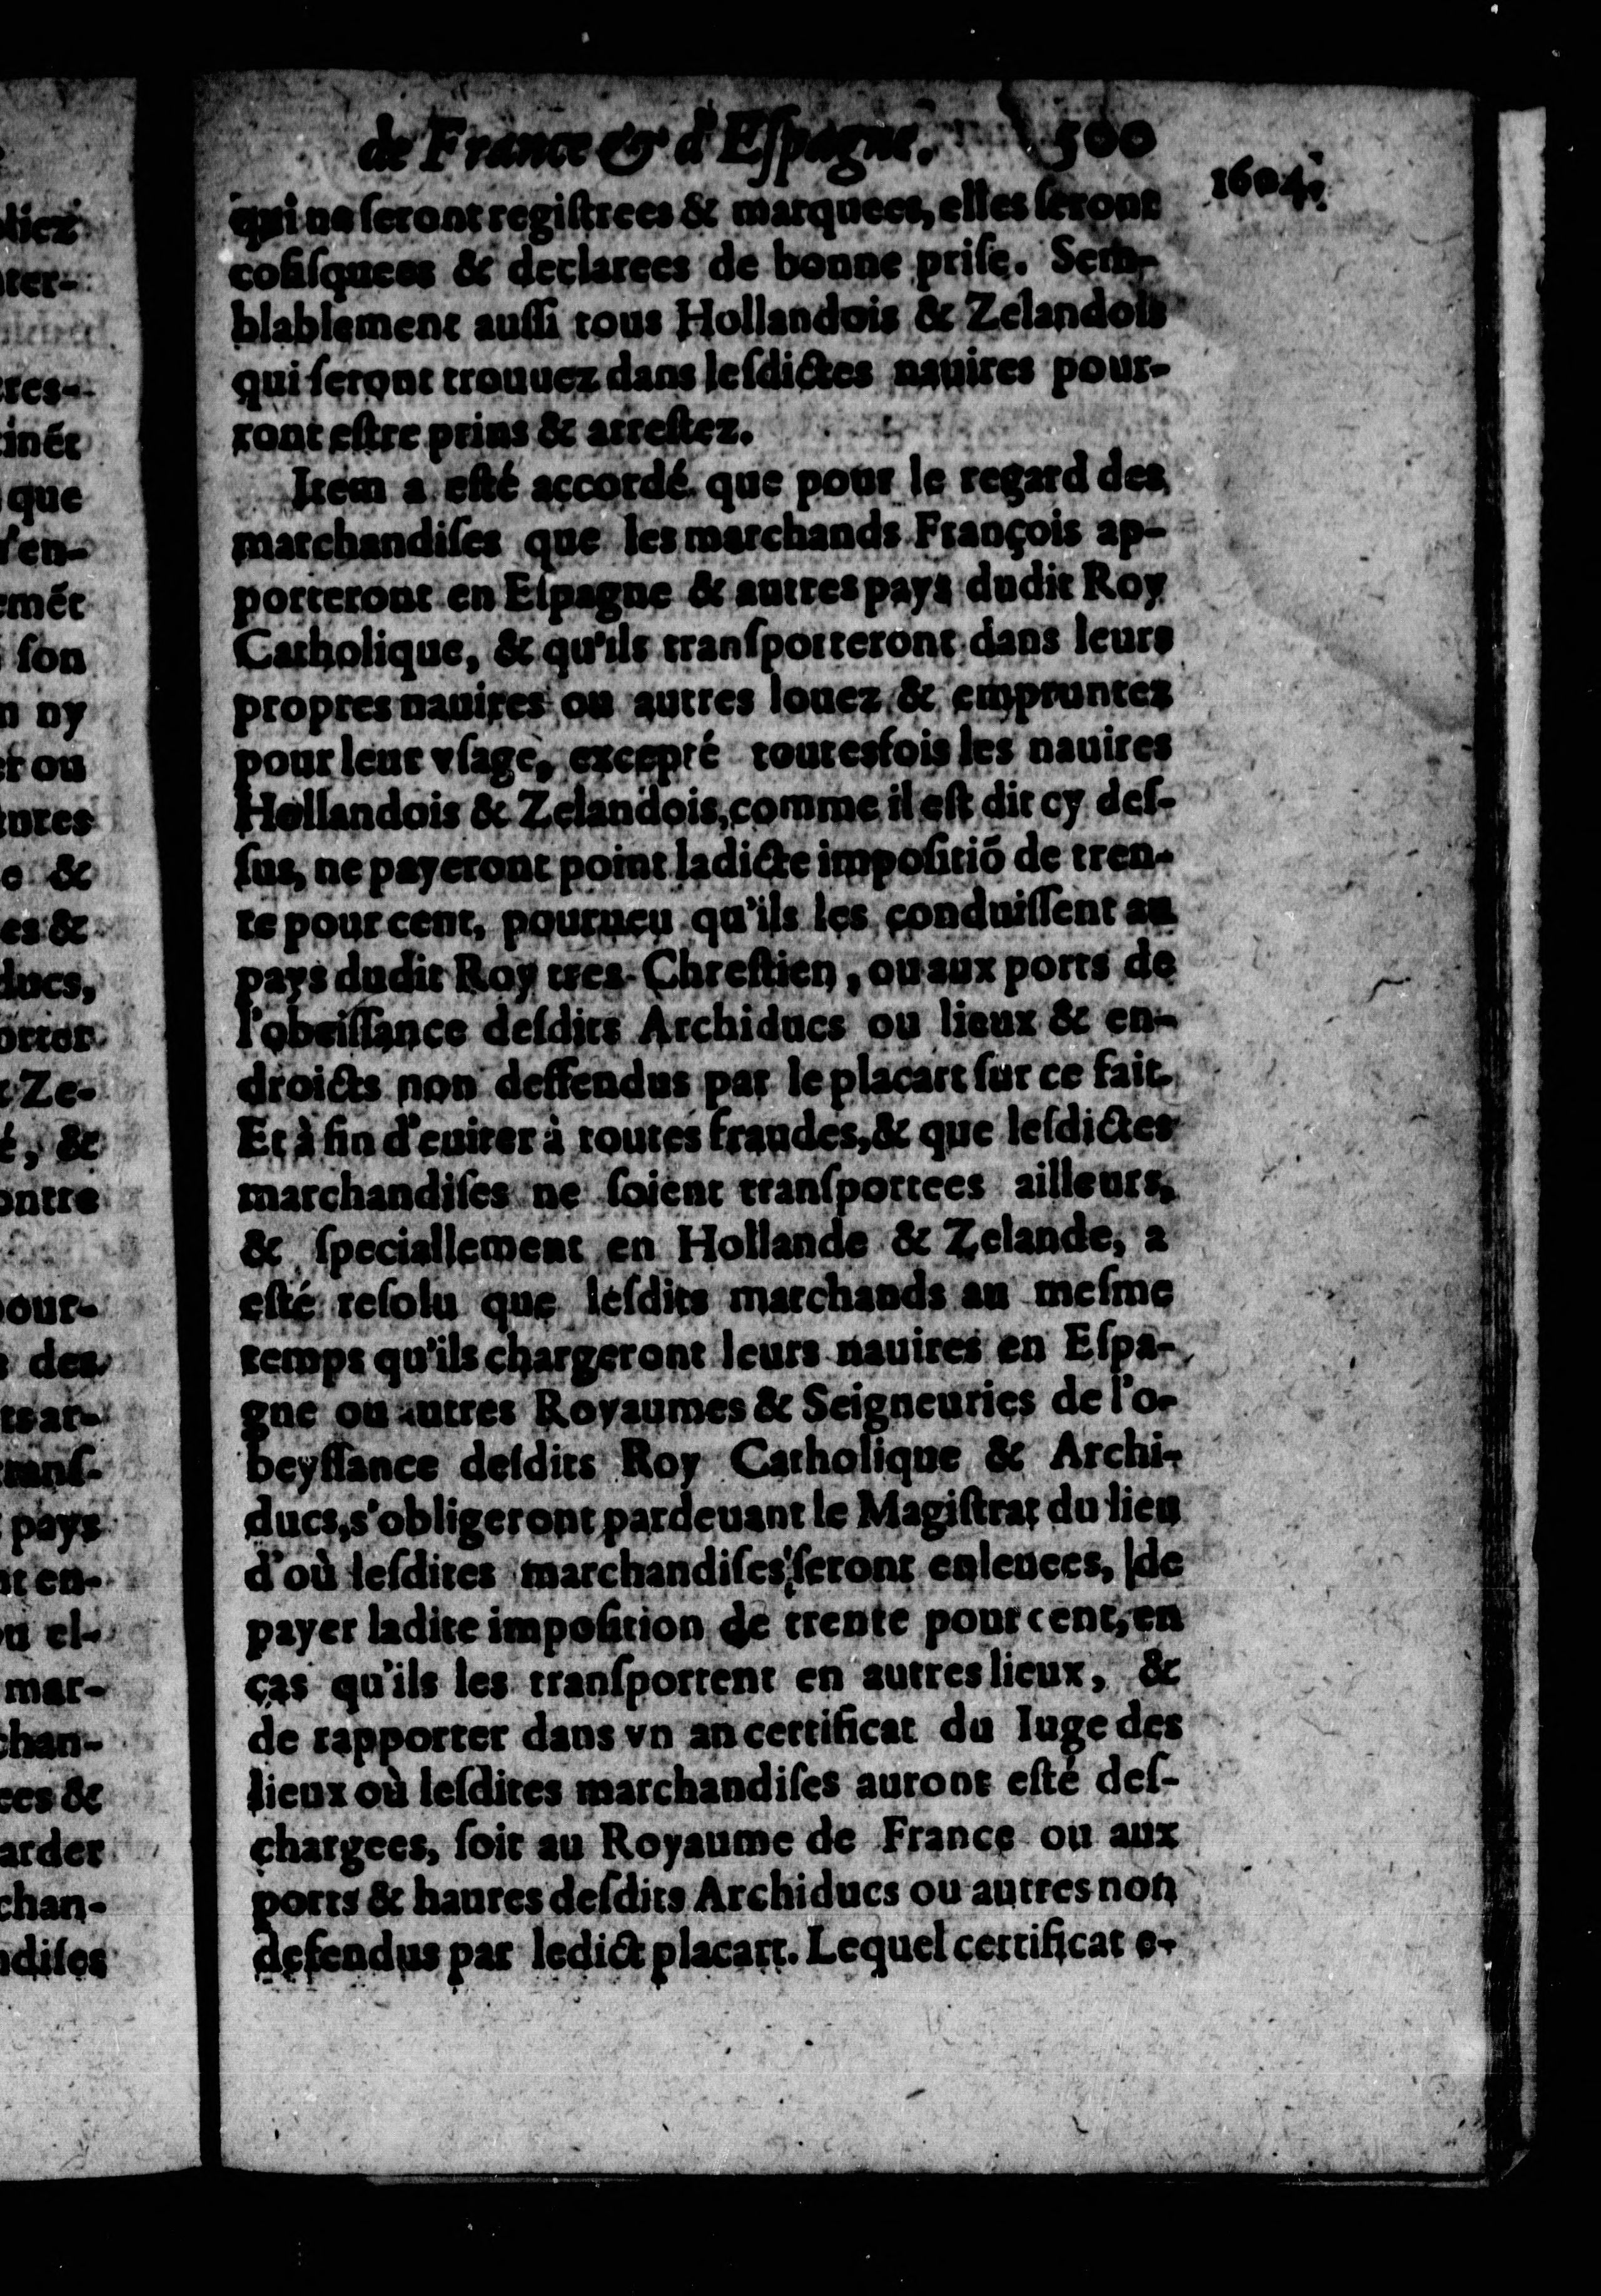 de France & d'Eſpagne. 500
1604.
qui ne ſeront regiſtrees & marquees, elles ſeront
cõfiſquees & declarees de bonne priſe. Sem-
blablement auſſi tous Hollandois & Zelandois
qui ſeront trouuez dans leſdictes nauires pour-
ront eſtre prins & arreſtez.
Item a eſté accordé que pour le regard des
marchandiſes que les marchands François ap-
porteront en Eſpagne & autres pays dudit Roy
Catholique, & qu'ils tranſporteront dans leurs
propres nauires ou autres louez & empruntez
pour leur vſage, excepté toutesfois les nauires
Hollandois & Zelandois, comme il eſt dit cy deſ-
ſus, ne payeront point ladicte impoſitiõ de tren-
te pour cent, pourueu qu'ils les conduiſſent au
pays dudit Roy tres-Chreſtien, ou aux ports de
l'obeiſſance deſdits Archiducs ou lieux & en-
droicts non deffendus par le placart ſur ce fait.
Et à fin d'euiter à toutes fraudes, & que leſdictes
marchandiſes ne ſoient tranſportees ailleurs,
& ſpeciallement en Hollande & Zelande, a
eſté reſolu que leſdits marchands au meſme
temps qu'ils chargeront leurs nauires en Eſpa-
gne ou autres Royaumes & Seigneuries de l'o-
beyſſance deſdits Roy Catholique & Archi-
ducs, s'obligeront pardeuant le Magiſtrat du lieu
d'où leſdites marchandiſes ſeront enleuees, de
payer ladite impoſition de trente pour cent, en
cas qu'ils les tranſportent en autres lieux, &
de rapporter dans vn an certificat du Iuge des
lieux où leſdites marchandiſes auront eſté deſ-
chargees, ſoit au Royaume de France ou aux
ports & haures deſdits Archiducs ou autres non
defendus par ledict placart. Lequel certificat e-